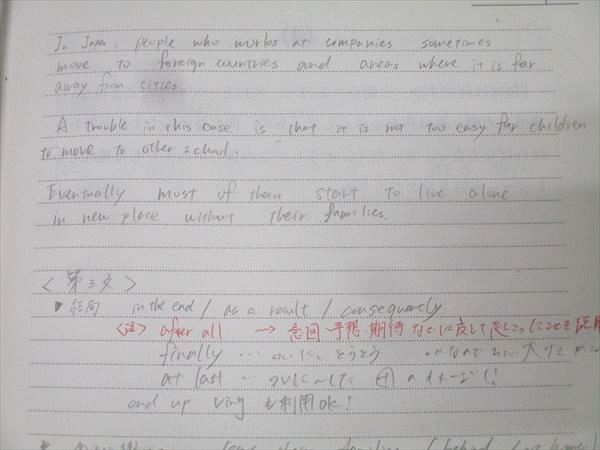 In Japan, people who works at companies sometimes
move to foreign countries and areas where it is far
away from cities.
A trouble in this case is that it is not too easy for children
to move to other school.
Eventually most of them start to live alone
in new place without their families.
<第三文>
結局 in the end / as a result / consequently
<注> after all → 意図・予想・期待などに反して
finally … ついに、とうとう
at last … ついに〜した ⊕のイメージ!!
end up Ving も利用OK!